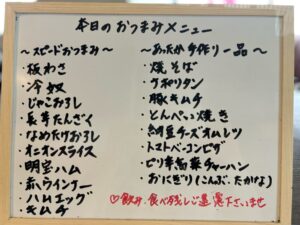 本日のおつまみメニュー
〜スピードおつまみ〜
・板わさ
・冷奴
・じゃこおろし
・長芋たんざく
・なめたけおろし
・オニオンスライス
・明宝ハム
・赤ウインナー
・ハムエッグ
・キムチ
〜あったか手作り一品〜
・焼そば
・ナポリタン
・豚キムチ
・とんぺい焼き
・納豆チーズオムレツ
・トマトベーコンピザ
・ピリ辛高菜チャーハン
・おにぎり(こんぶ、たかな)
♡飲み、食べ残しご遠慮下さいませ